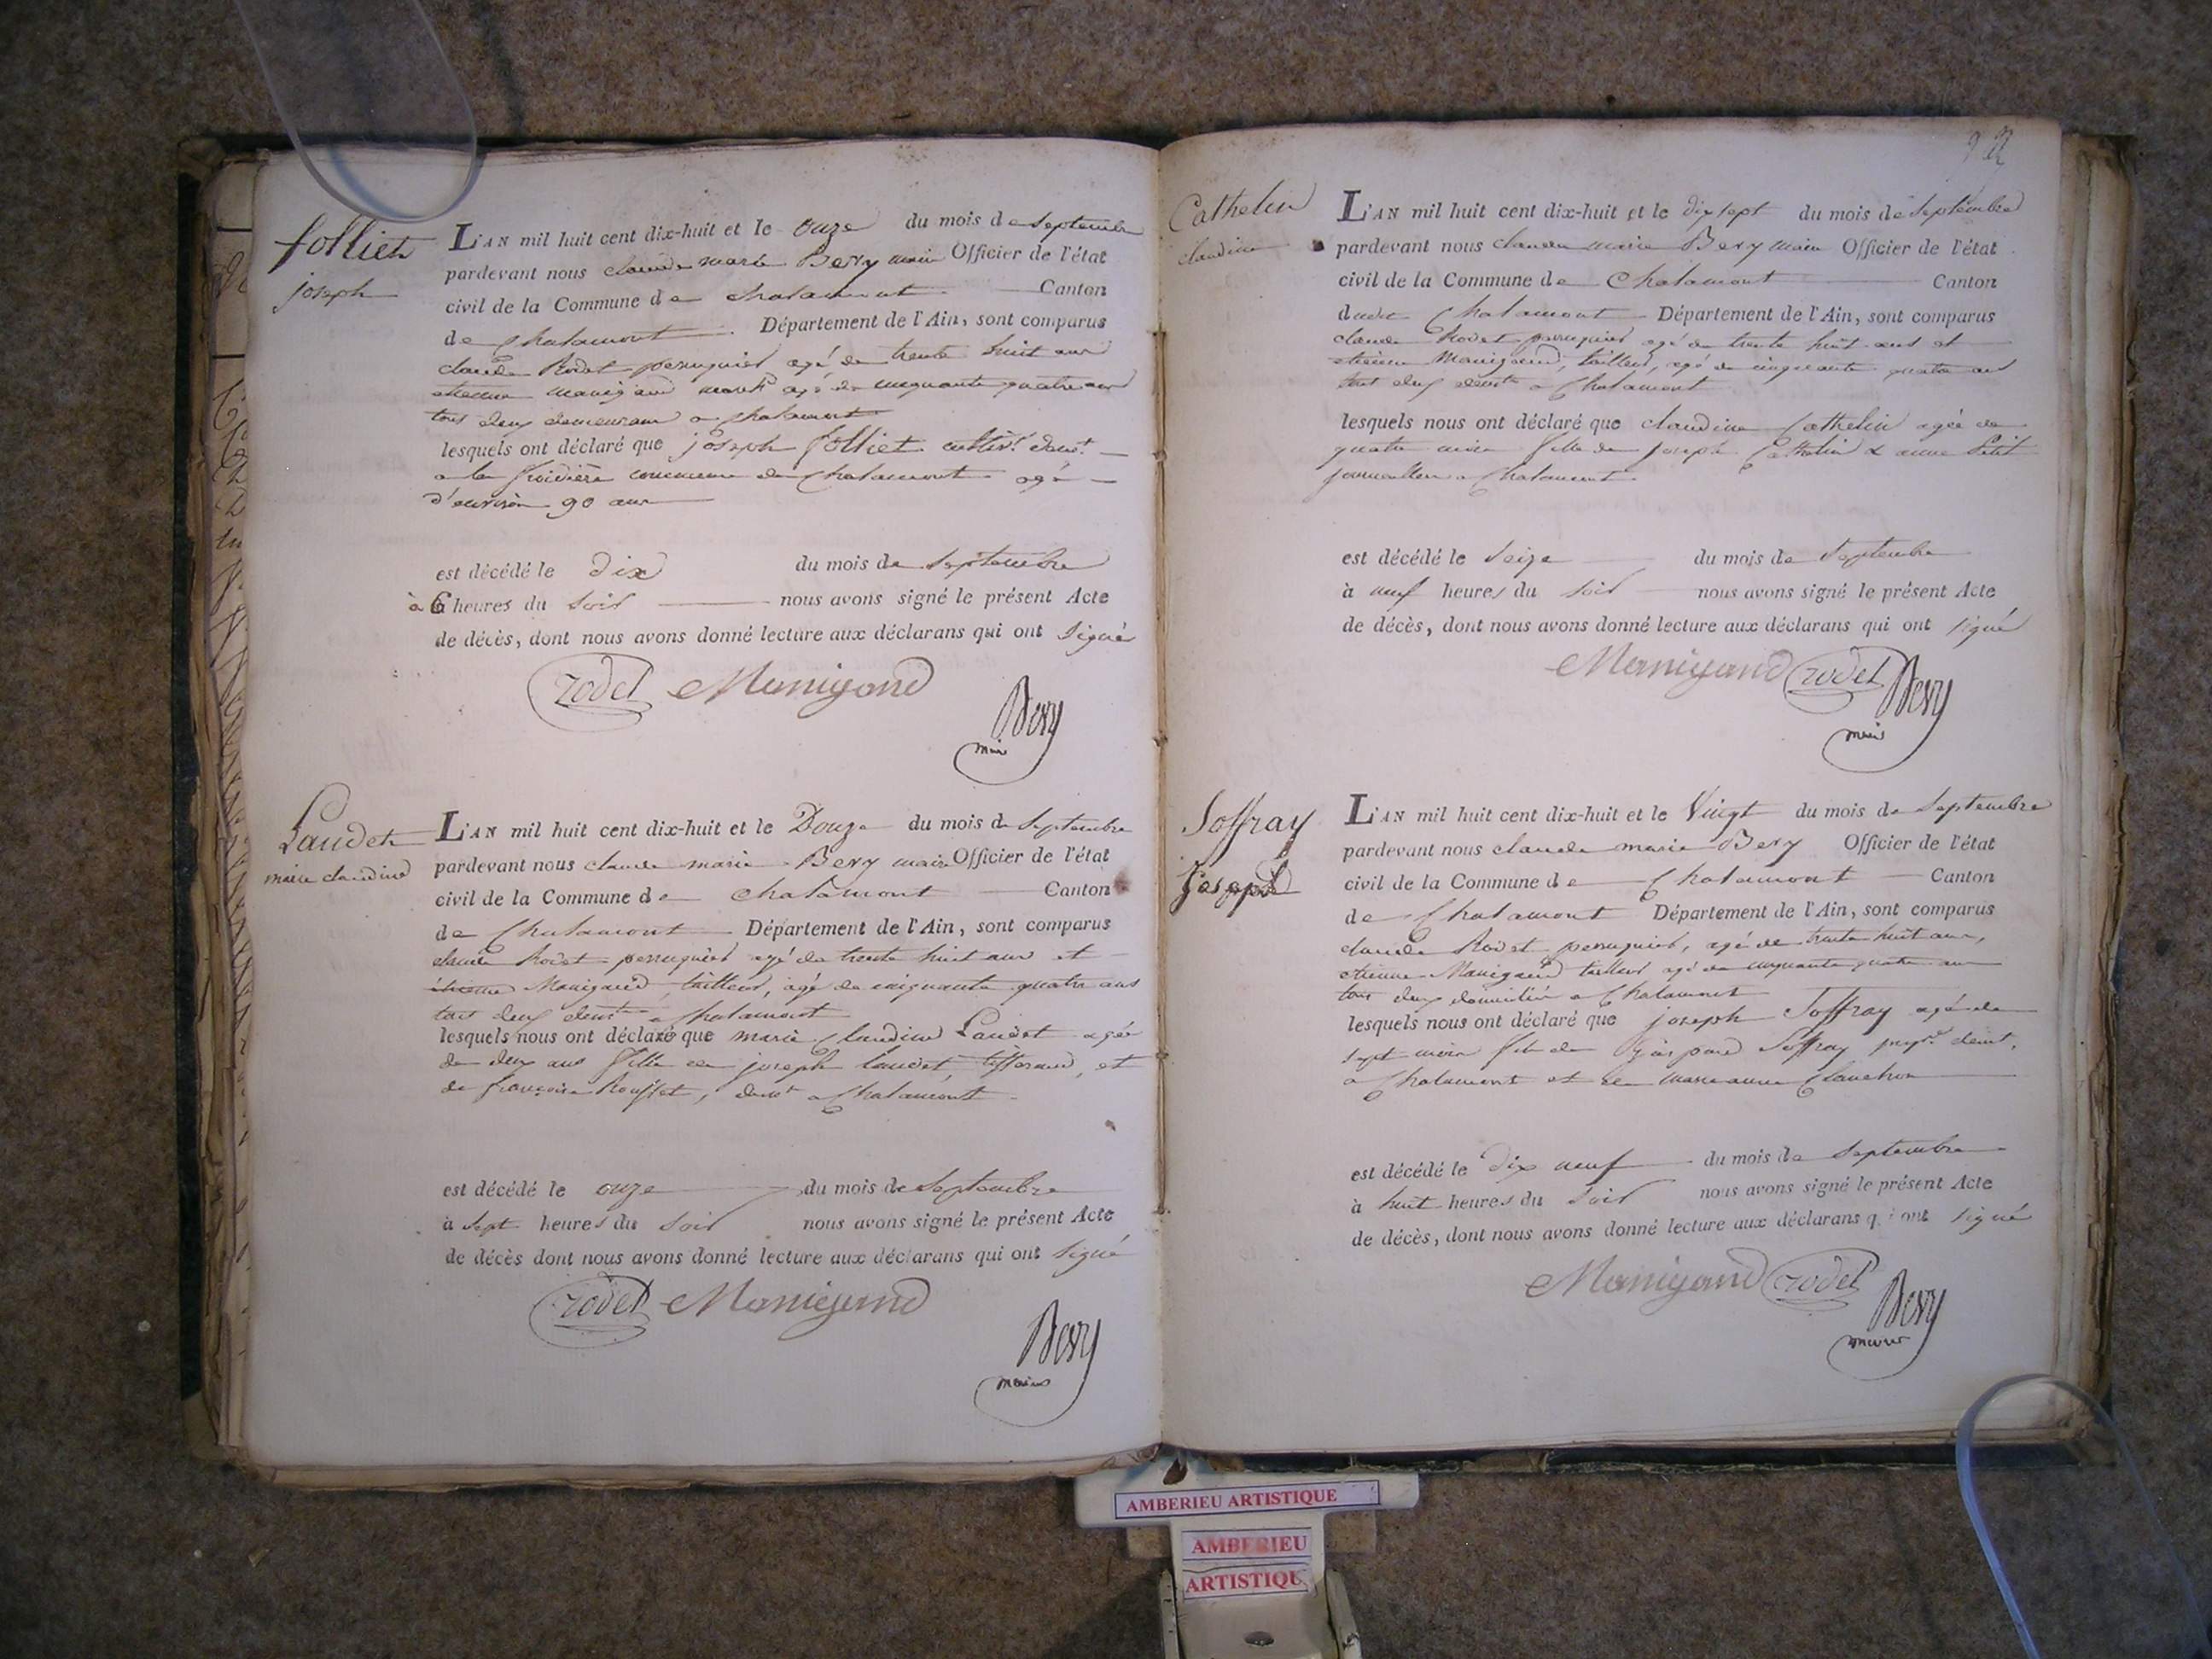 folliet
joseph
L'AN mil huit cent dix-huit et le onze du mois de septembre
pardevant nous claude marie Bevy maire Officier de l'état
civil de la Commune de chalamont Canton
de Chalamont Département de l'Ain, sont comparus
claude Rodet perruquier agé de trente huit ans
etienne manigand agé de cinquante quatre ans
tous deux demeurant a chalamont
lesquels ont déclaré que joseph folliet cultivr demt
a la commune de Chalamont agé
d'environ 90 ans
est décédé le dix du mois de septembre
à 6 heures du soir nous avons signé le présent Acte
de décès, dont nous avons donné lecture aux déclarans qui ont signé
rodet Manigand
Bevy
maire
Laudet
marie claudine
L'AN mil huit cent dix-huit et le Douze du mois de septembre
pardevant nous claude marie Bevy maire Officier de l'état
civil de la Commune de chalamont Canton
de Chalamont Département de l'Ain, sont comparus
claude Rodet perruquier agé de trente huit ans et
etienne Manigand, tailleur, agé de cinquante quatre ans
tout deux demt a chalamont
lesquels nous ont déclaré que marie Claudine Laudet agée
de deux ans fille de joseph laudet, tisserand, et
de françoise Rousset, demt a Chalamont
est décédé le onze du mois de septembre
à sept heures du soir nous avons signé le présent Acte
de décès dont nous avons donné lecture aux déclarans qui ont signé
rodet Manigand
Bevy
maire
Cathelin
claudine
L'AN mil huit cent dix-huit et le dix sept du mois de septembre
pardevant nous claude marie Bevy maire Officier de l'état
civil de la Commune de Chalamont Canton
dudit Chalamont Département de l'Ain, sont comparus
claude Rodet perruquier agé de trente huit ans et
etienne Manigand, tailleur, agé de cinquante quatre ans
tout deux demt a Chalamont
lesquels nous ont déclaré que claudine Cathelin agée de
quatre mois fille de joseph Cathelin & anne Petit
journallier a Chalamont
est décédé le seize du mois de septembre
à neuf heures du soir nous avons signé le présent Acte
de décès, dont nous avons donné lecture aux déclarans qui ont signé
Manigand rodet
Bevy
maire
Joffray
Joseph
L'AN mil huit cent dix-huit et le Vingt du mois de septembre
pardevant nous claude marie Bevy Officier de l'état
civil de la Commune de Chalamont Canton
de Chalamont Département de l'Ain, sont comparus
claude Rodet perruquier, agé de trente huit ans,
etienne Manigand tailleur agé de cinquante quatre ans
tous deux domiciliés a Chalamont
lesquels nous ont déclaré que joseph Joffray agé de
sept mois fils de gaspard Joffray demt,
a Chalamont et de marieanne
est décédé le dix neuf du mois de septembre
à huit heures du soir nous avons signé le présent Acte
de décès, dont nous avons donné lecture aux déclarans qui ont signé
Manigand rodet
Bevy
maire
AMBERIEU ARTISTIQUE
AMBERIEU
ARTISTIQU